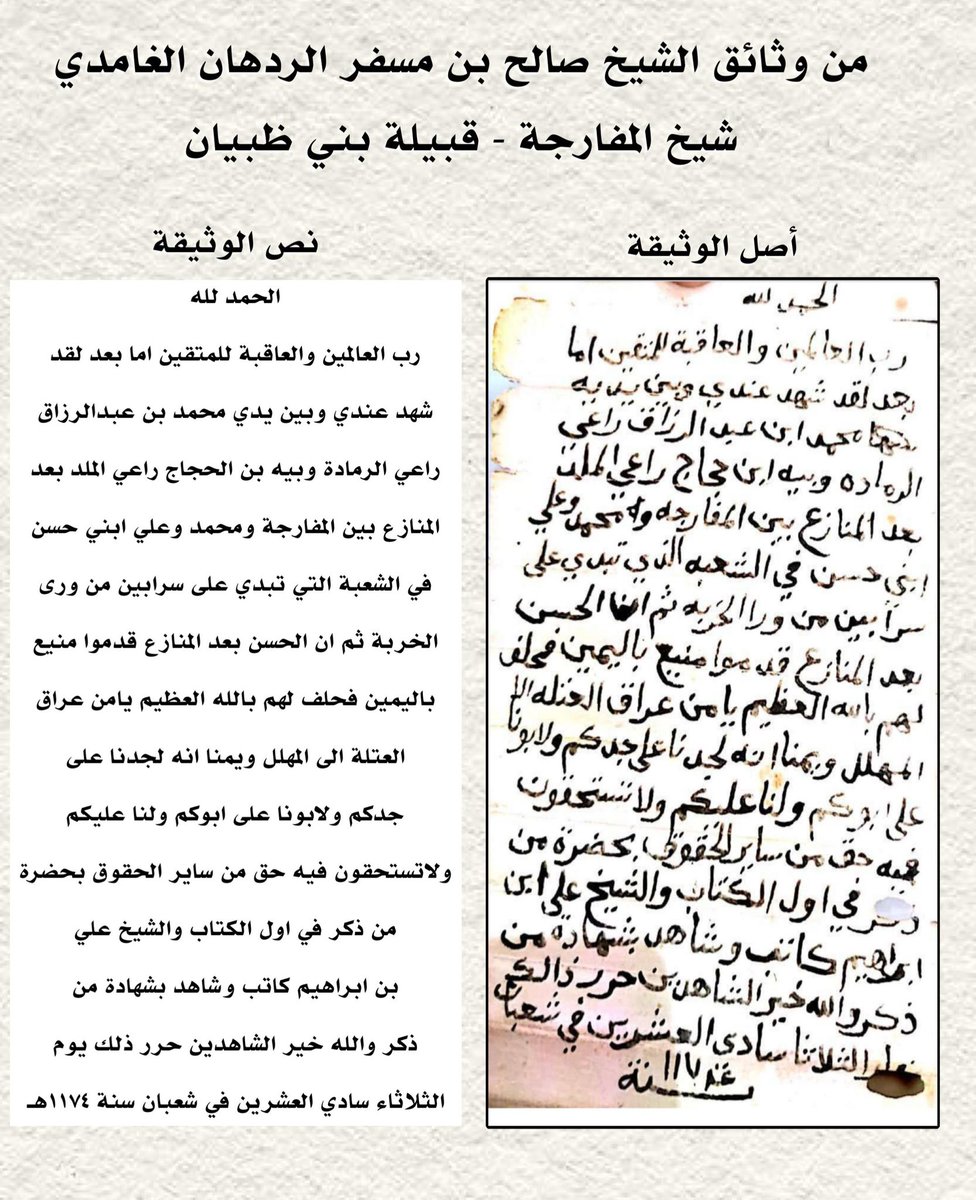 من وثائق الشيخ صالح بن مسفر الردهان الغامدي
شيخ المفارجة - قبيلة بني ظبيان
أصل الوثيقة
الحمد لله
رب العالمين والعاقبة للمتقين اما
بعد لقد شهد عندي وبين يديه
محمد ابن عبد الرزاق راعي
الرماده وبيه ابن حجاج راعي الملد
بعد المنازع بين المفارجه و محمد وعلي
ابني حسن في الشعبه الذي تبدي على
سرابين من ورا الخربه ثم ان الحسن
بعد المنازع قدموا منيع باليمين فحلف
لهم بالله العظيم يامن عراق العتله الا
المهلل ويمنا انه لجدنا على جدكم ولابونا
على ابوكم ولنا عليكم ولا تستحقون
فيه حق من ساير الحقوق بحضرة من
ذكر في اول الكتاب والشيخ علي ابن
ابراهيم كاتب وشاهد بشهادة من
ذكر والله خير الشاهدين حرر ذالك
الثلاثا سادي العشرين في شعبان
سنة ١١٧٤
نص الوثيقة
الحمد لله
رب العالمين والعاقبة للمتقين اما بعد لقد
شهد عندي وبين يدي محمد بن عبدالرزاق
راعي الرمادة وبيه بن الحجاج راعي الملد بعد
المنازع بين المفارجة ومحمد وعلي ابني حسن
في الشعبة التي تبدي على سرابين من ورى
الخربة ثم ان الحسن بعد المنازع قدموا منيع
باليمين فحلف لهم بالله العظيم يامن عراق
العتلة الى المهلل ويمنا انه لجدنا على
جدكم ولابونا على ابوكم ولنا عليكم
ولاتستحقون فيه حق من ساير الحقوق بحضرة
من ذكر في اول الكتاب والشيخ علي
بن ابراهيم كاتب وشاهد بشهادة من
ذكر والله خير الشاهدين حرر ذلك يوم
الثلاثاء سادي العشرين في شعبان سنة ١١٧٤هـ